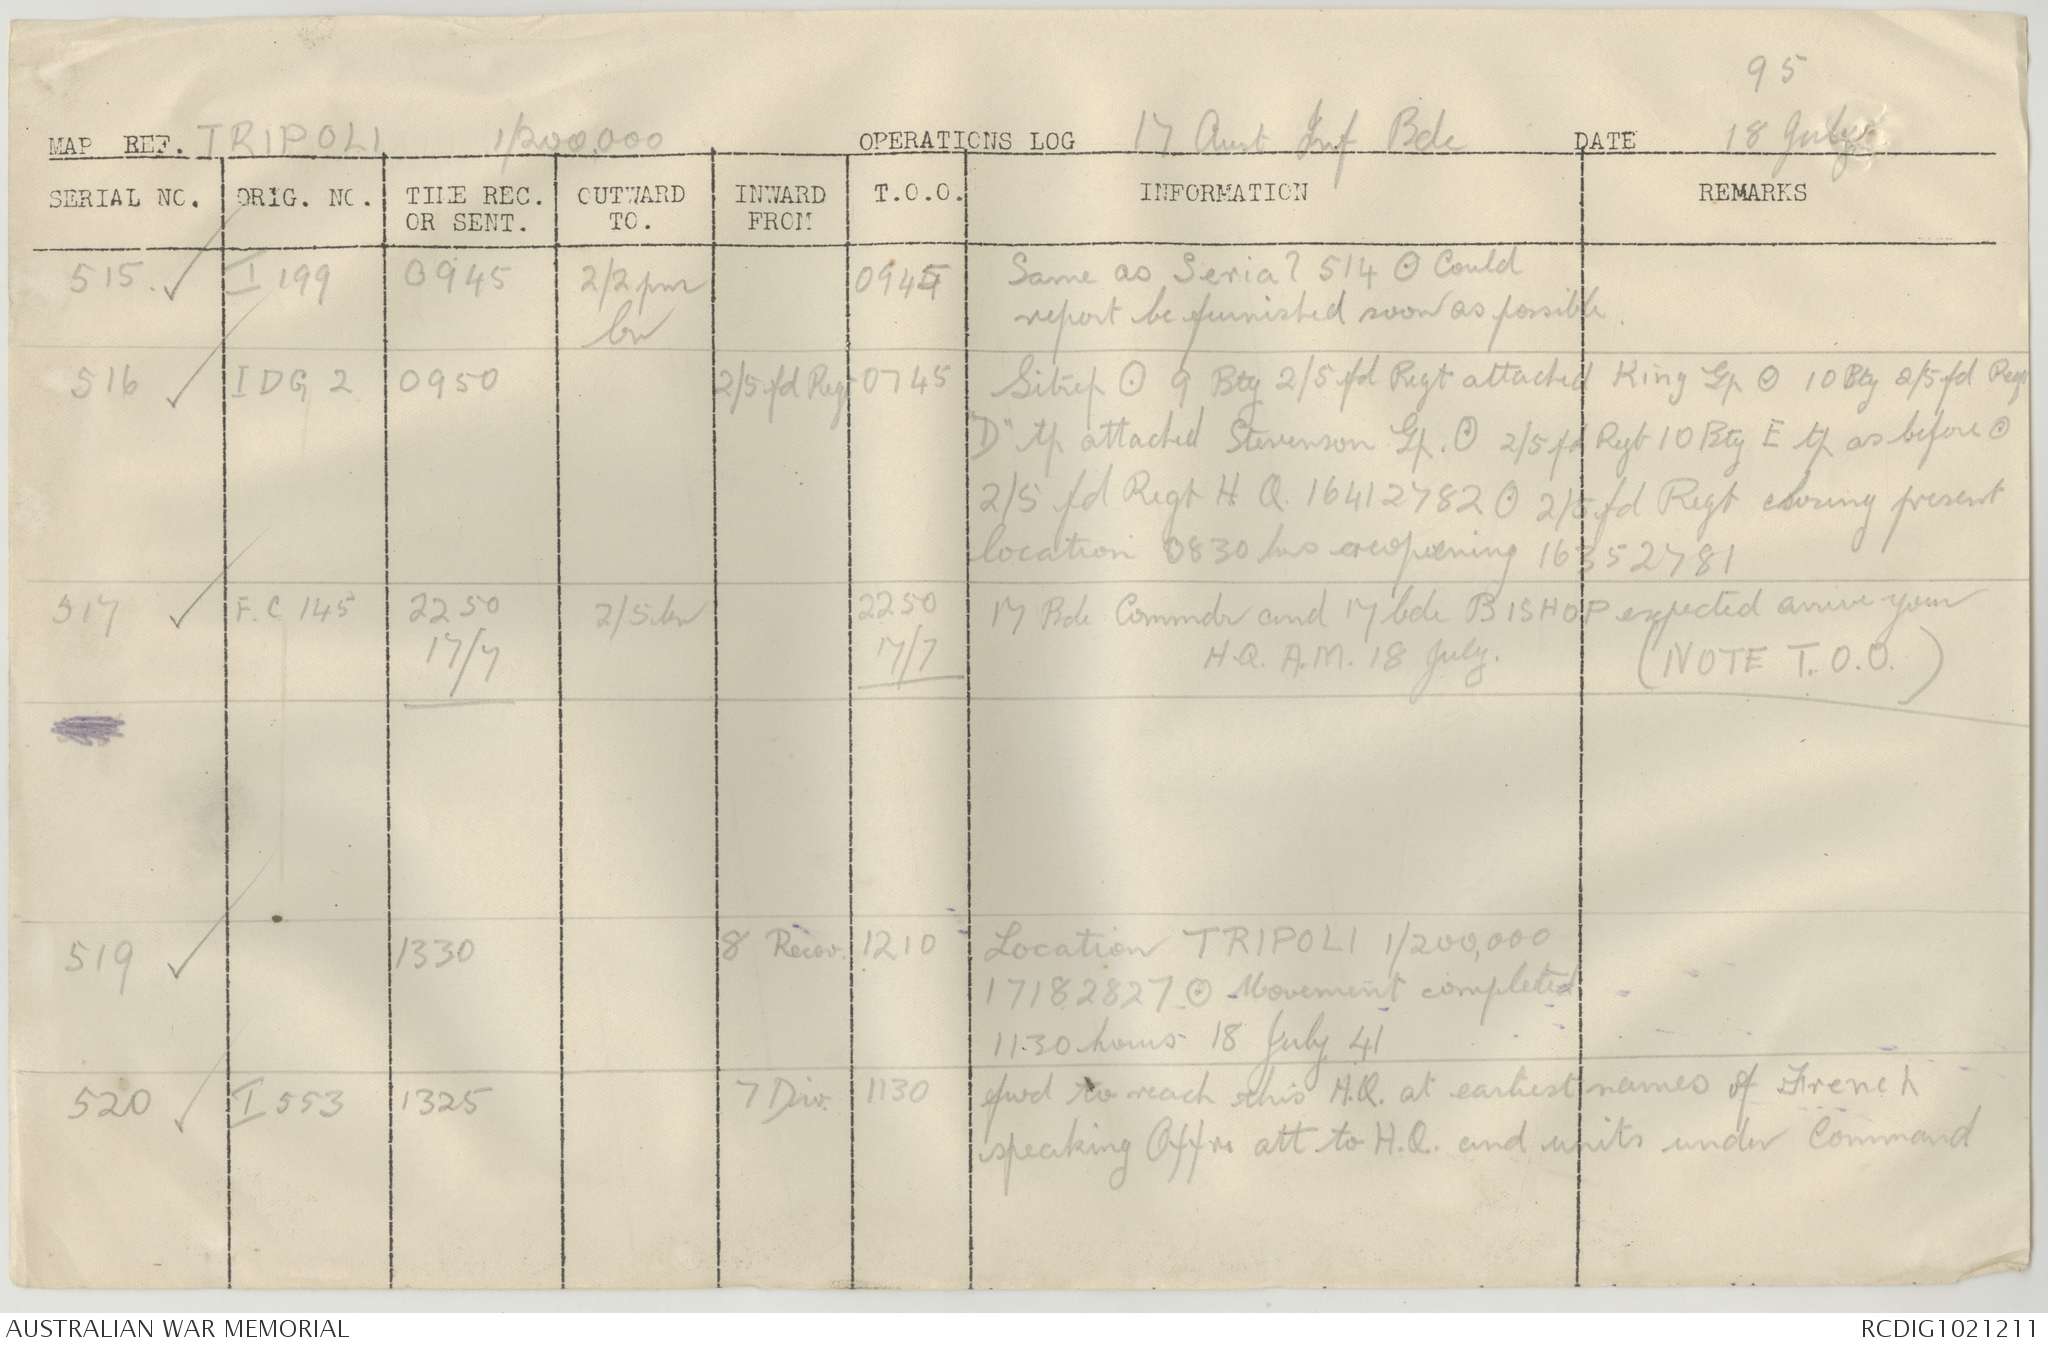 95
MAP REF. TRIPOLI 1/200,000 OPERATIONS LOG 17 Aust Inf Bde DATE 18 July
SERIAL NO. ORIG. NO. TIME REC. OR SENT. OUTWARD TO. INWARD FROM T.O.O. INFORMATION REMARKS
515. I 199 0945 2/2 pnr bn 0945 Same as Serial 514 ⊙ Could
report be furnished soon as possible.
516 I DG 2 0950 2/5 fd Regt 0745 Sitrep ⊙ 9 Bty 2/5 fd Regt attached King Gp ⊙ 10 Bty 2/5 fd Regt
"D" tp attached Stevenson Gp. ⊙ 2/5 fd Regt 10 Bty E tp as before ⊙
2/5 fd Regt H Q. 16412782 ⊙ 2/5 fd Regt closing present
location 0830 hrs reopening 16352781
517 F.C 145 2250 2/5 bn 2250 17 Bde Commdr and 17 bde BISHOP expected arrive your
17/7 17/7 H.Q. A.M. 18 July. (NOTE T.O.O.)
519 1330 8 Recov. 1210 Location TRIPOLI 1/200,000
17182827 ⊙ Movement completed
1130 hours 18 July 41
520 I 553 1325 7 Div. 1130 fwd to reach this H.Q. at earliest names of French
speaking Offrs att to H.Q. and units under Command
AUSTRALIAN WAR MEMORIAL RCDIG1021211